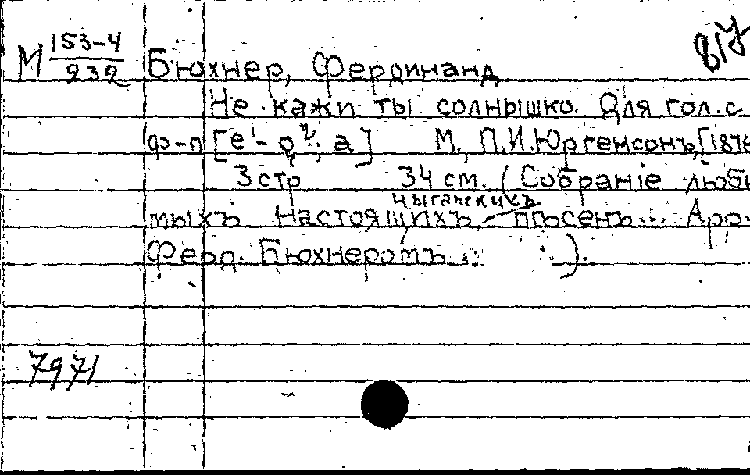 817
М 153-4/232
Бюхнер, Фердинанд
Не кажи ты солнышко. Для гол. с
фо-п [e¹-g²; a] М., П.И.Юргенсонъ, [1876
3 стр 34 см. (Собраніе люби
цыганскихъ
мыхъ настоящихъ пѣсенъ... Аро
Ферд. Бюхнеромъ...).
7971